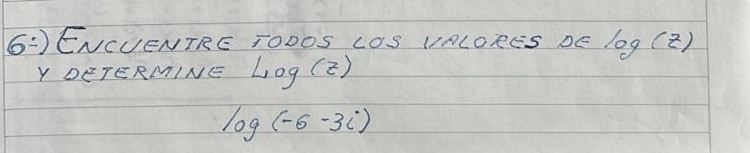 6:) ENCUENTRE TODOS LOS VALORES DE log (z)
Y DETERMINE Log (z)
log (-6 -3i)